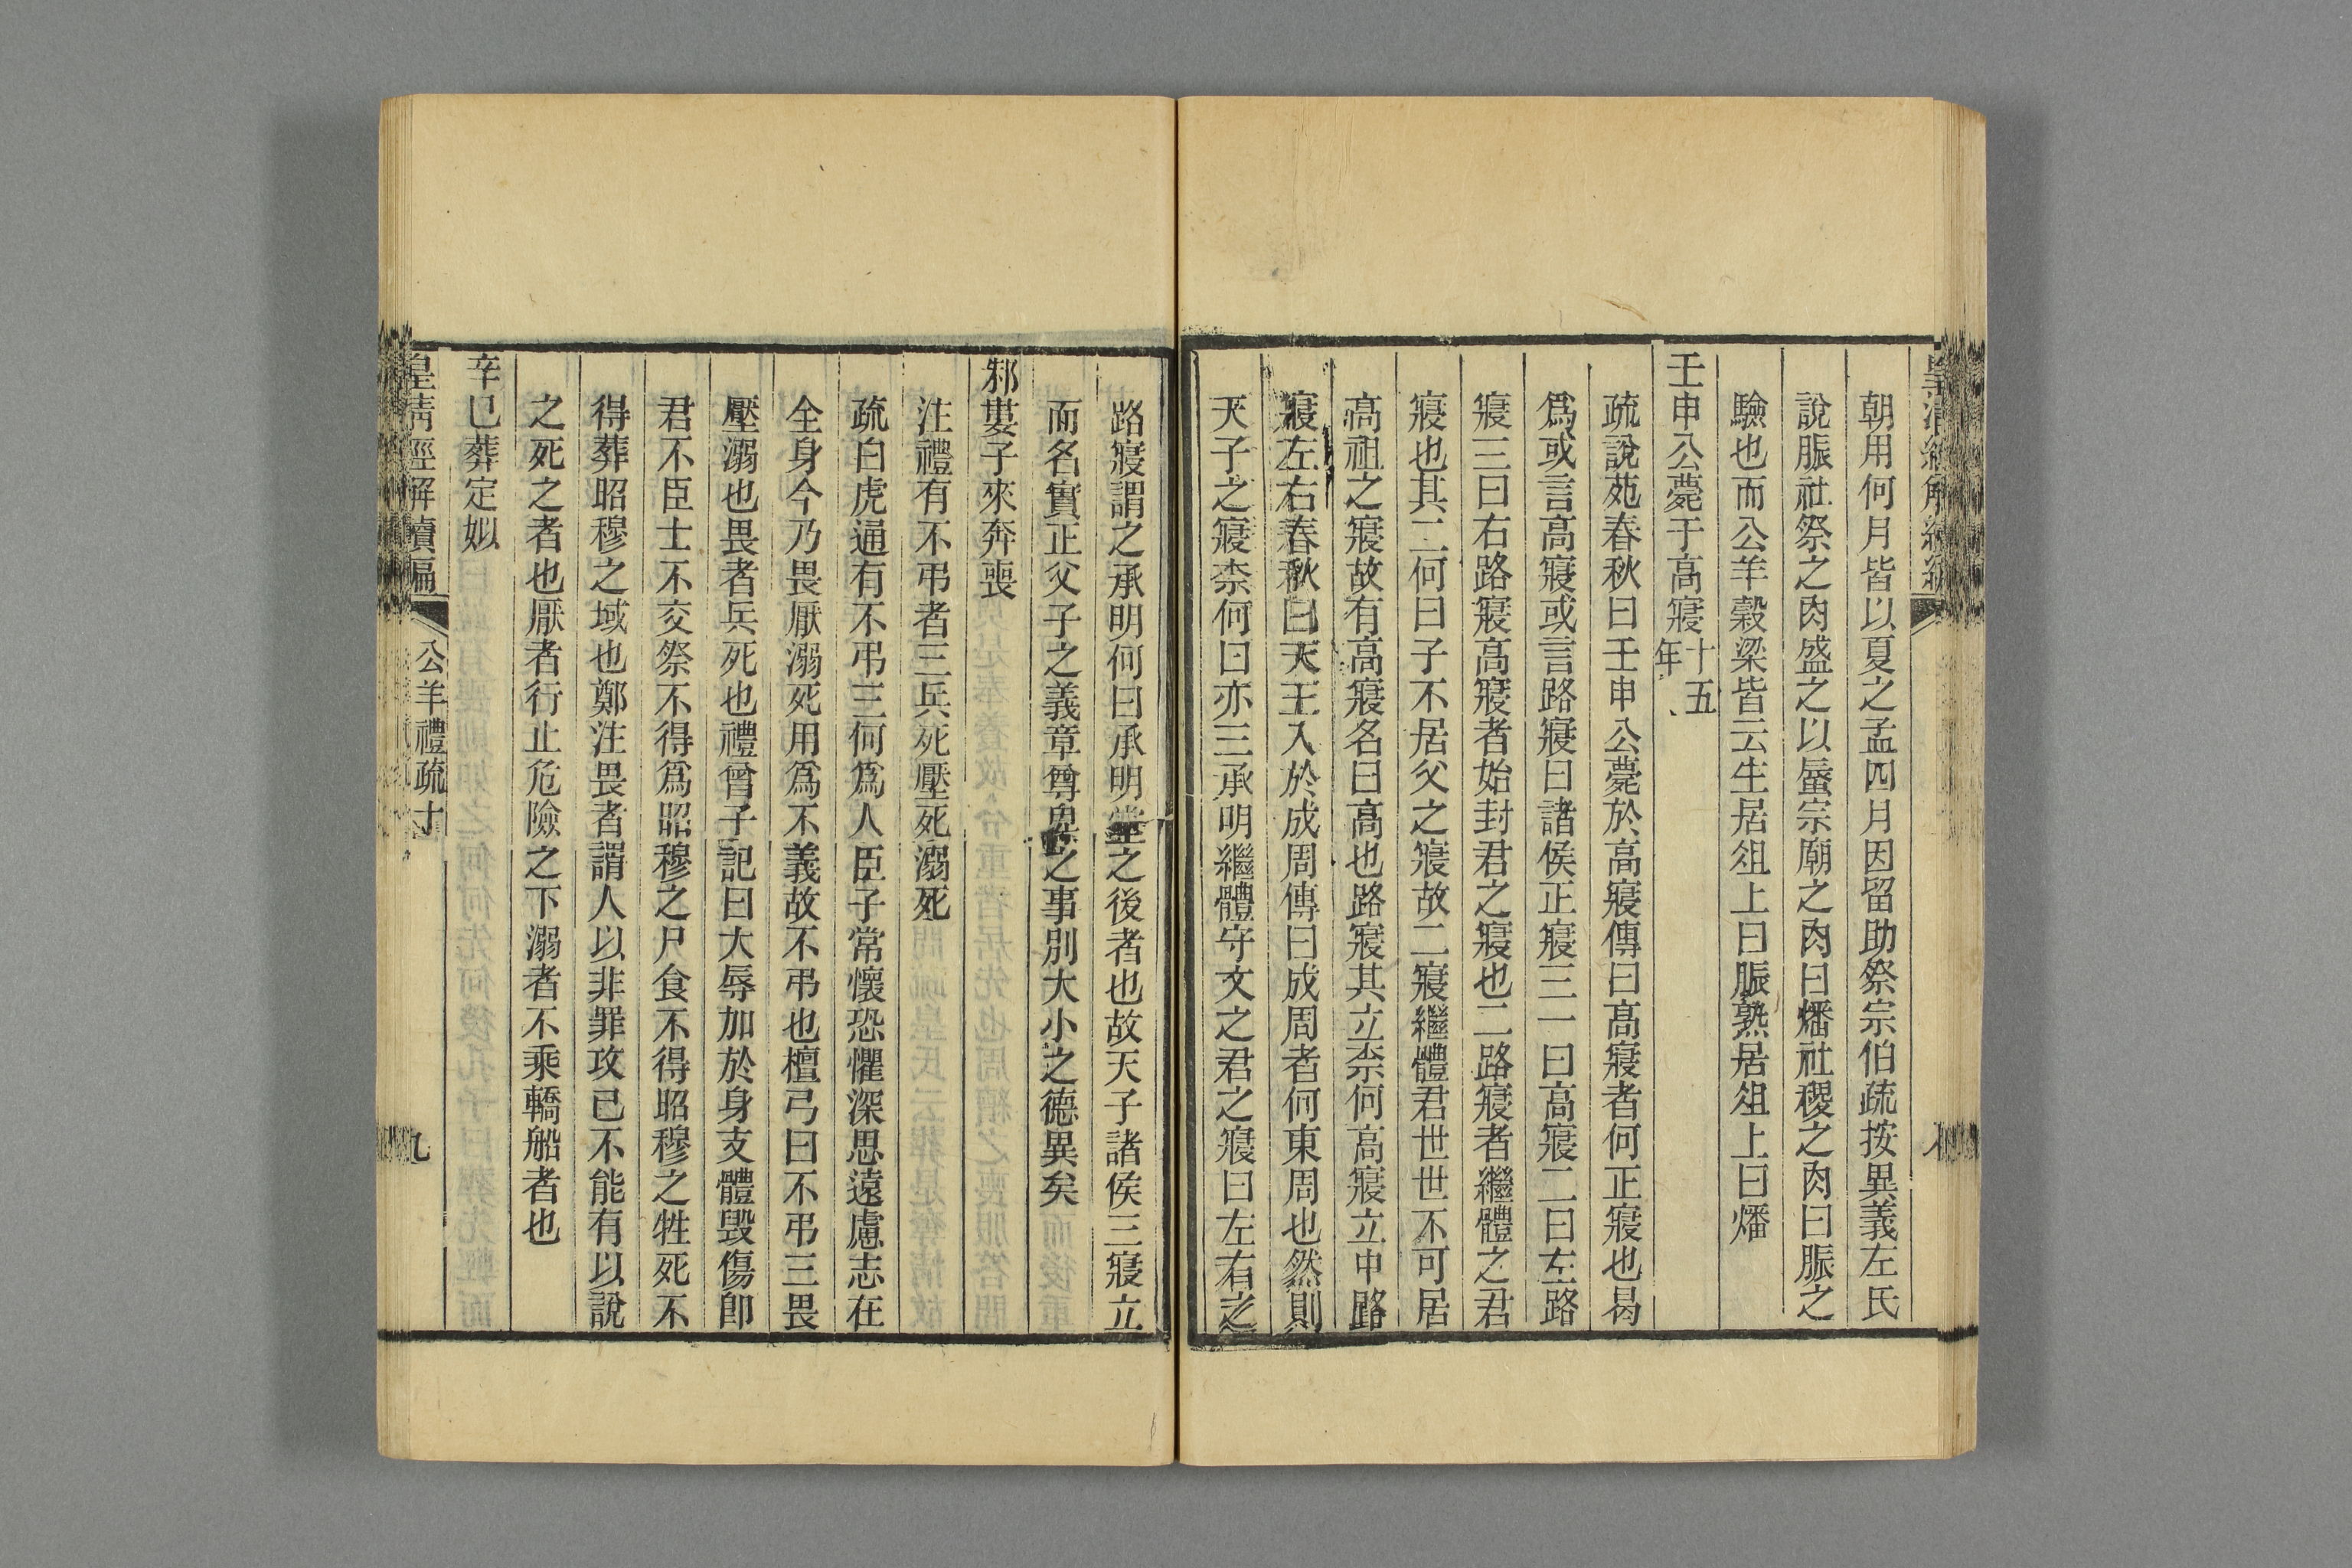 朝用何月皆以夏之孟四月因留助祭宗伯疏按異義左氏
說脤社祭之肉盛之以蜃宗廟之肉曰燔社稷之肉曰脤之
驗也而公羊穀梁皆云生居俎上曰脤熟居俎上曰燔
壬申公薨于高寢十五年
疏說苑春秋曰壬申公薨於高寢傳曰高寢者何正寢也曷
爲或言高寢或言路寢曰諸侯正寢三一曰高寢二曰左路
寢三曰右路寢高寢者始封君之寢也二路寢者繼體之君
寢也其二何曰子不居父之寢故二寢繼體君世世不可居
高祖之寢故有高寢名曰高也路寢其立柰何高寢立中路
寢左右春秋曰天王入於成周傳曰成周者何東周也然則
天子之寢柰何曰亦三承明繼體守文之君之寢曰左右之
路寢謂之承明何曰承明堂之後者也故天子諸侯三寢立
而名實正父子之義章尊卑之事別大小之德異矣
邾婁子來奔喪
注禮有不弔者三兵死壓死溺死
疏白虎通有不弔三何爲人臣子常懷恐懼深思遠慮志在
全身今乃畏厭溺死用爲不義故不弔也檀弓曰不弔三畏
壓溺也畏者兵死也禮曾子記曰大辱加於身支體毀傷卽
君不臣士不交祭不得爲昭穆之尸食不得昭穆之牲死不
得葬昭穆之域也鄭注畏者謂人以非罪攻己不能有以說
之死之者也厭者行止危險之下溺者不乘轎船者也
辛巳葬定姒
皇清經解續編 公羊禮疏十 九